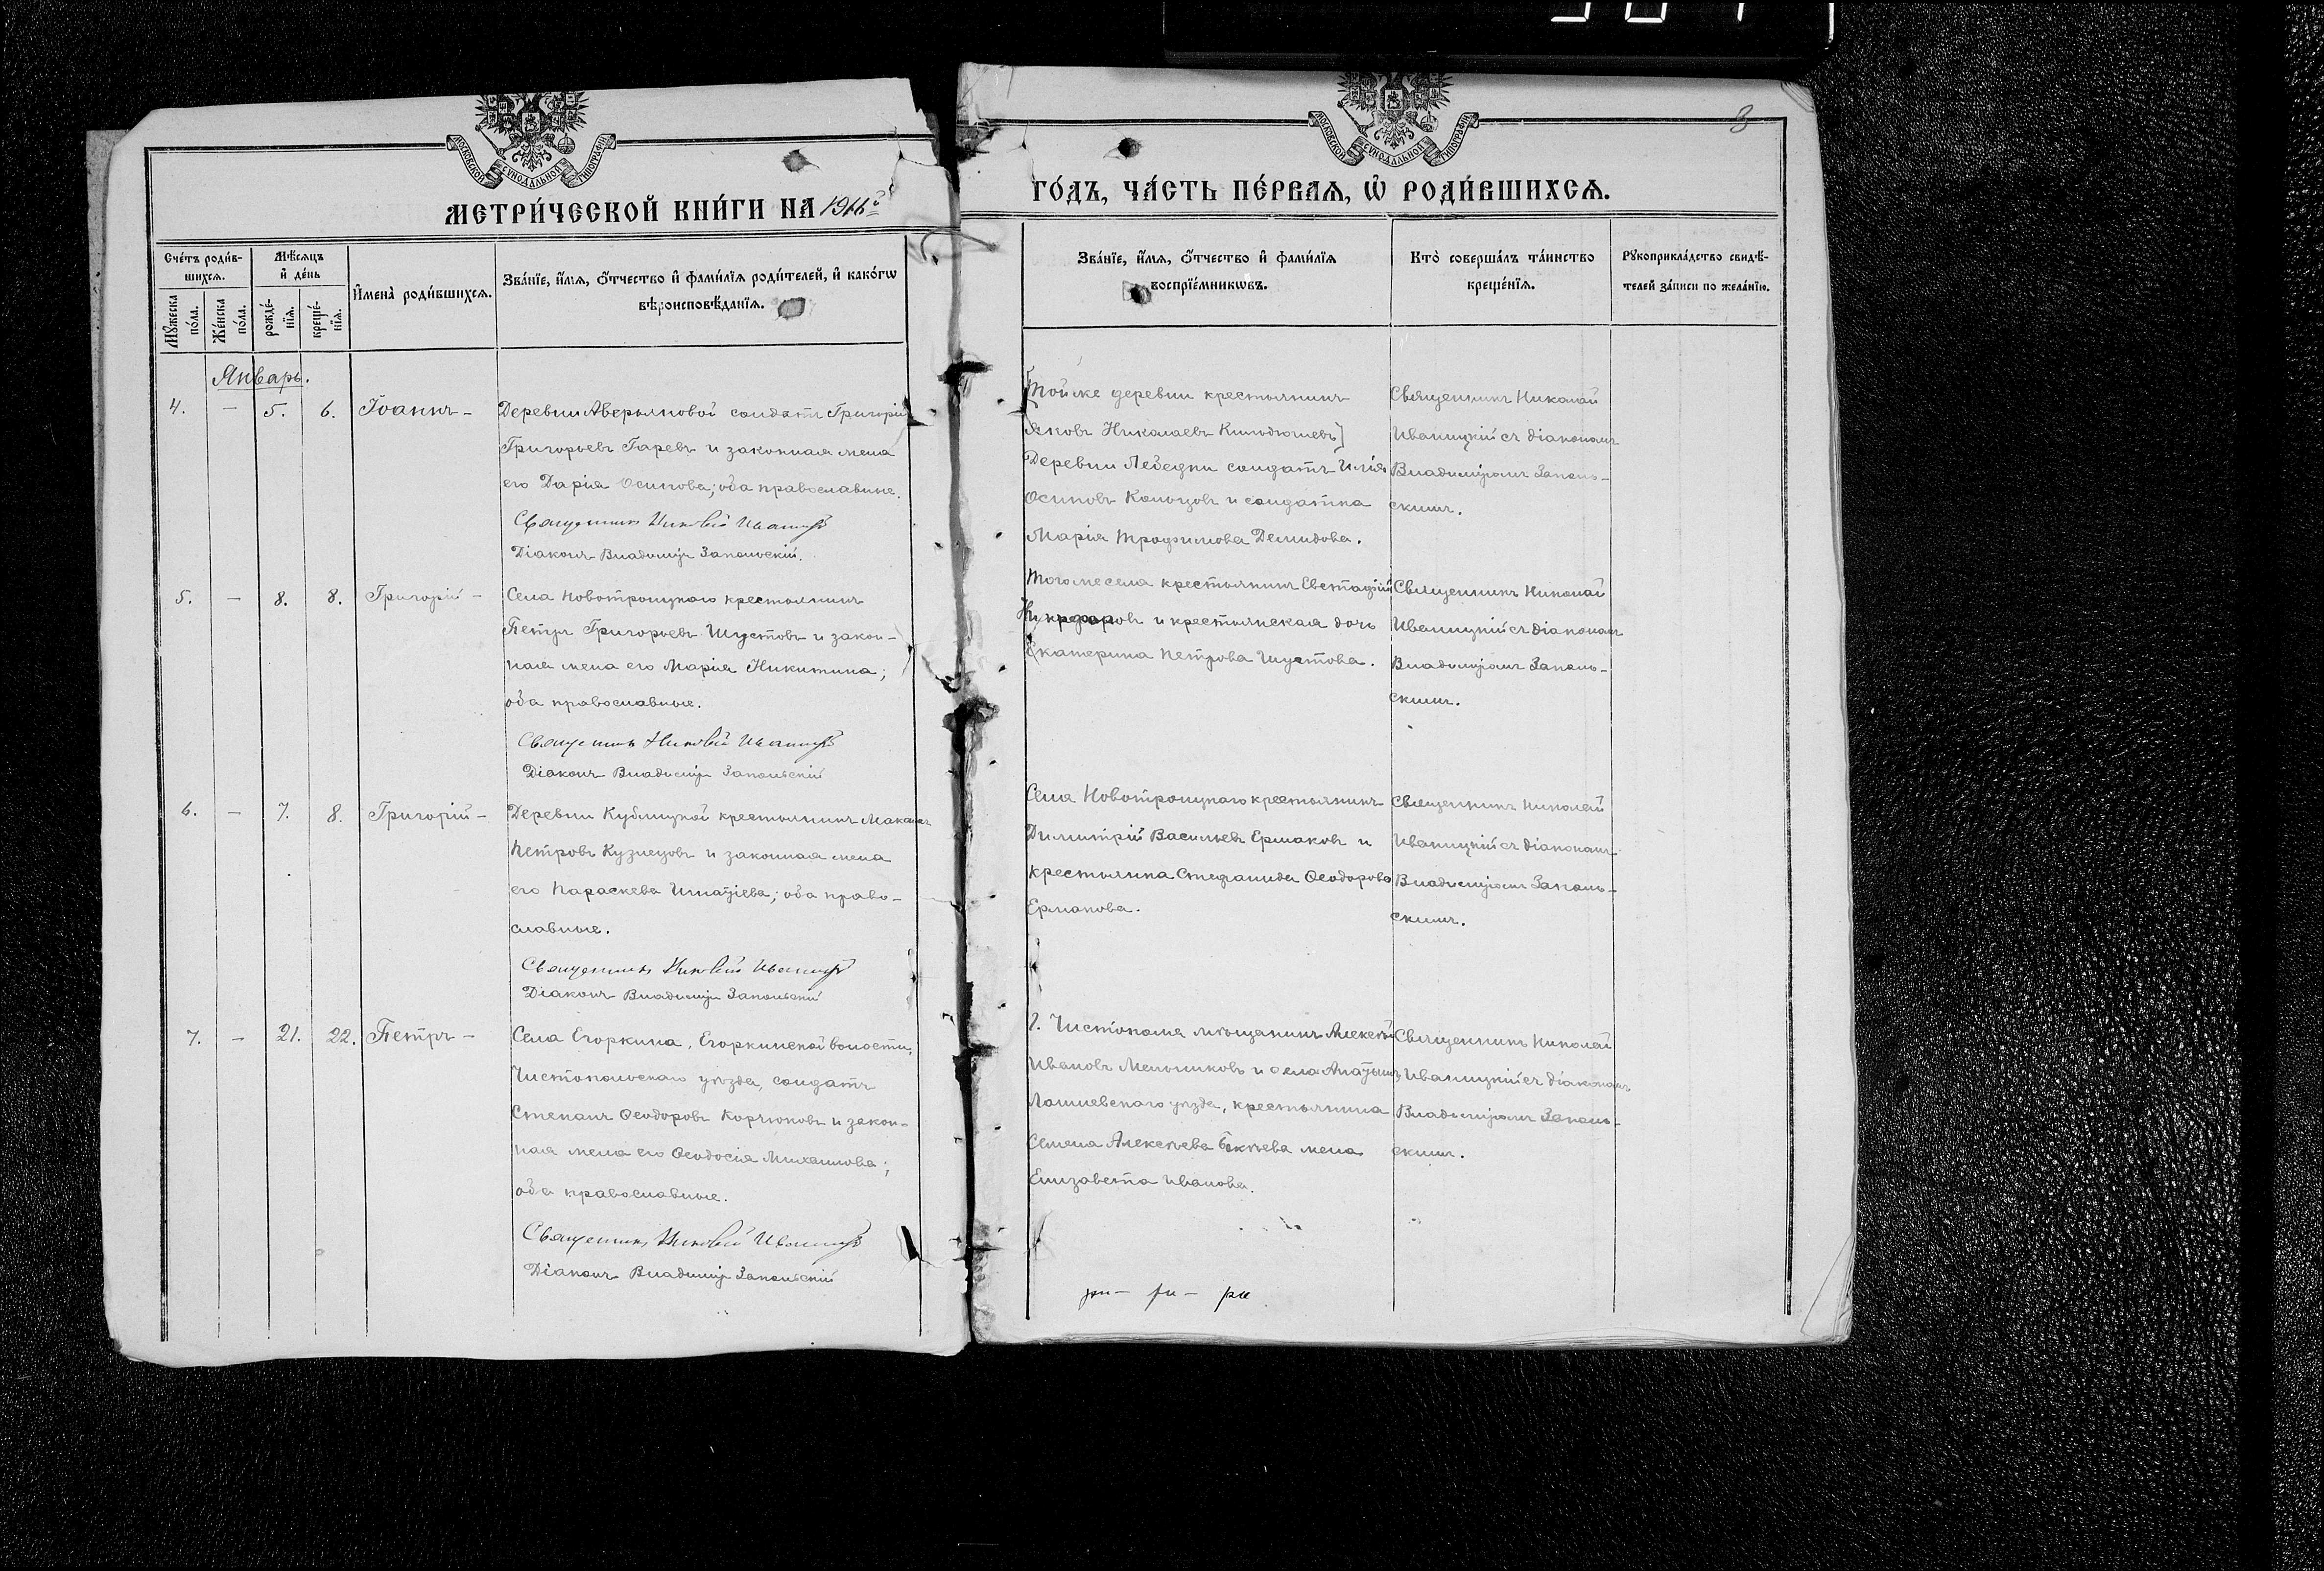 3
МОСКОВСКОЙ СѴНОДАЛЬНОЙ ТИПОГРАФІИ
МОСКОВСКОЙ СѴНОДАЛЬНОЙ ТИПОГРАФІИ
МЕТРИ́ЧЕСКОЙ КНИ́ГИ НА 1916й
ГО́ДЪ, ЧА́СТЬ ПЕ́РВАѦ, Ѡ҆ РОДИ́ВШИХСѦ.
Сче́тъ роди́в-
шихсѧ.
Мꙋ́жеска по́ла.
Же́нска по́ла.
Мѣ́сѧцъ
и҆ де́нь
рожде́-нїѧ.
креще́-нїѧ.
И҆мена̀ роди́вшихсѧ.
Зва́нїе, и҆́мѧ, ѻ҆́тчество и҆ фами́лїѧ роди́телей, и҆ како́гѡ
вѣроисповѣ́данїѧ.
Зва́нїе, и҆́мѧ, ѻ҆́тчество и҆ фами́лїѧ
воспрїе́мникѡвъ.
Кто̀ соверша́лъ та́инство
креще́нїѧ.
Рꙋкоприкла́дство свидѣ́-
телей за́писи по жела́нїю.
Январь.
4. — 5. 6. Іоаннъ —
Деревни Аверьяновой солдатъ Григорій
Григорьевъ Гаревъ и законная жена
его Дарія Осипова; оба православные.
Священникъ Николай Иваницкій
Діаконъ Владиміръ Запольскій.
Той же деревни крестьянинъ
Яковъ Николаевъ Кильдюшевъ]
Деревни Лебедки солдатъ Илія
Осиповъ Кольцовъ и солдатка
Марія Трофимова Демидова.
Священникъ Николай
Иваницкій съ діакономъ
Владиміромъ Заполь-
скимъ.
5. — 8. 8. Григорій —
Села Новотроицкаго крестьянинъ
Петръ Григорьевъ Шустовъ и закон-
ная жена его Марія Никитина;
оба православные.
Священникъ Николай Иваницкій
Діаконъ Владиміръ Запольскій
Того же села крестьянинъ Евстафій
и крестьянская дочь
Екатерина Петрова Шустова.
Священникъ Николай
Иваницкій съ діакономъ
Владиміромъ Заполь-
скимъ.
6. — 7. 8. Григорій —
Деревни Кублицкой крестьянинъ Максимъ
Петровъ Кузнецовъ и законная жена
его Параскева Игнатіева; оба право-
славные.
Священникъ Николай Иваницкій
Діаконъ Владиміръ Запольскій
Села Новотроицкаго крестьянинъ
Димитрій Васильевъ Ермаковъ и
крестьянка Стефанида Ѳеодорова
Ермакова.
Священникъ Николай
Иваницкій съ діакономъ
Владиміромъ Заполь-
скимъ.
7. — 21. 22. Петръ —
Села Егоркина, Егоркинской волости,
Чистопольскаго уѣзда, солдатъ
Степанъ Ѳеодоровъ Корчюковъ и закон-
ная жена его Ѳеодосія Михаилова;
оба православные.
Священникъ Николай Иваницкій
Діаконъ Владиміръ Запольскій
г. Чистополя мѣщанинъ Алексѣй
Ивановъ Мельниковъ и села
Лаишевскаго уѣзда, крестьянина
Семена Алексѣева жена
Елизавета Иванова.
Священникъ Николай
Иваницкій съ діакономъ
Владиміромъ Заполь-
скимъ.